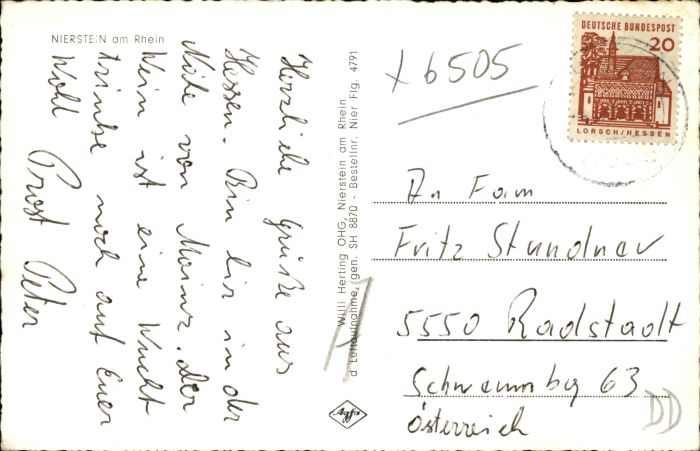 NIERSTEIN am Rhein
Herzliche Grüße aus
Hessen. Bin hir in der
Nähe von Mainz. Der
Wein ist eine Wucht
trinke noch auf Euer
Wohl
Prost Peter
Willi Herting OHG, Nierstein am Rhein
d Luftaufnahme, gen. SH 8870 - Bestellnr. Nier Flg. 4791
Agfa
x 6505
DEUTSCHE BUNDESPOST
20
LORSCH/HESSEN
An Fam
Fritz Stundner
5550 Radstadt
63
Österreich
DD